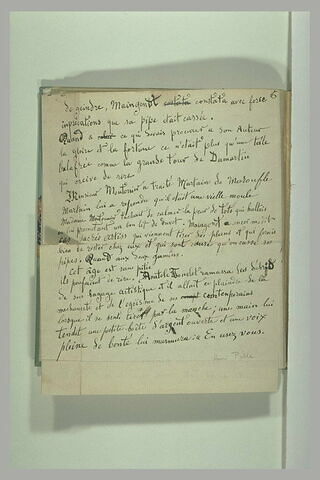 6
de geindre, Maingent constata avec force
imprécations que sa pipe était cassée.
Quand a ce qui devais procurer a son Auteur
la gloire et la fortune ce n'était plus qu'une toile
balafrée comme la grande tour de Damartin
qui creive de rire.
Monsieur Montonnet a traité Martain de
Martain lui a repondu qu'il était une vielle moule
Madame de calmer la peur de toto qui
en lui promettant un
sacrés artiss qui viennent tirer des plans et qui ferais
bien de rester chez eux et qui sont cause qu'on casse ses
pipes. Quand aux deux gamins.
Cet âge est sans pitié
ils pouffaient de rire. ramassa les débris
de son bagage artistique et il allait se plaindre de la
mechanceté et de l'egoisme de ses contemporains
lorsque il se senti tiré par la manche; une main lui
tendit une petite boîte d'argent ouverte et une voix
pleine de bonté lui murmura: En usez vous.